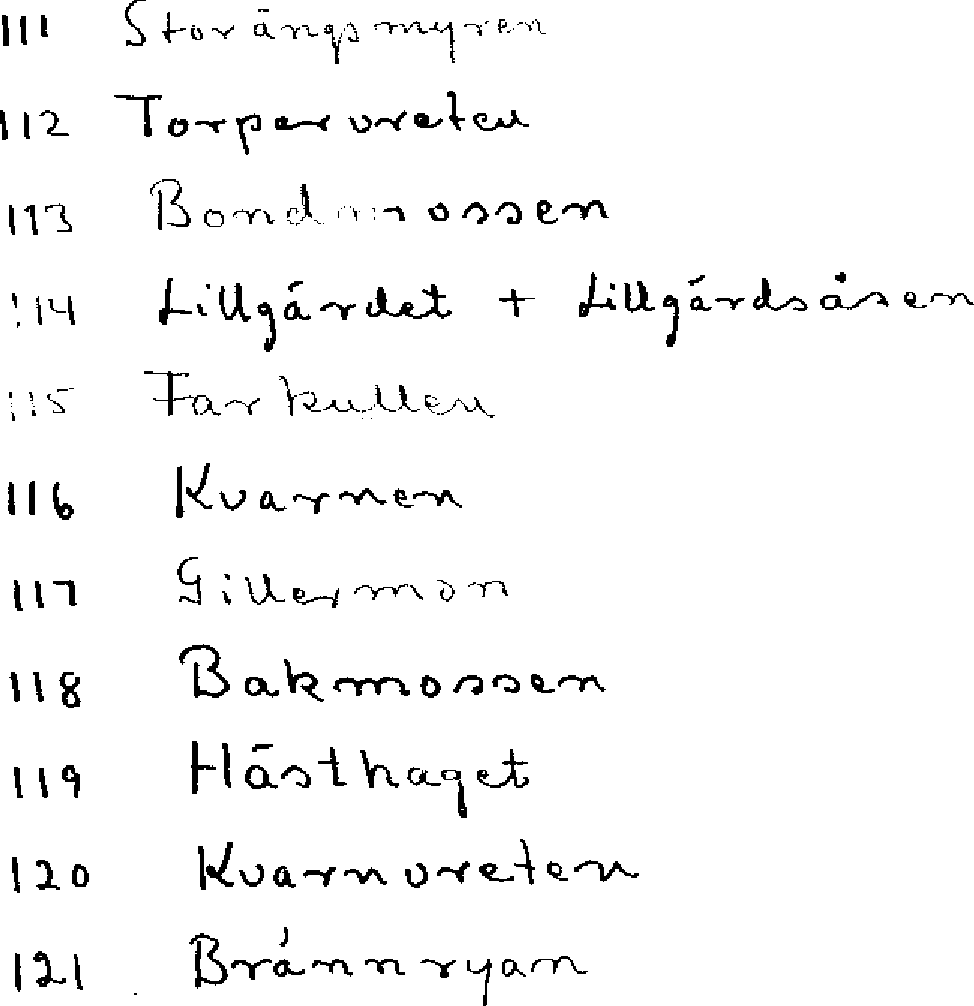 111 Storängsmyren
112 Torparvreten
113 Bondmossen
114 Lillgärdet + Lillgärdsåsen
115 Farkullen
116 Kvarnen
117 Gillermon
118 Bakmossen
119 Hästhaget
120 Kvarnvreten
121 Brännryan